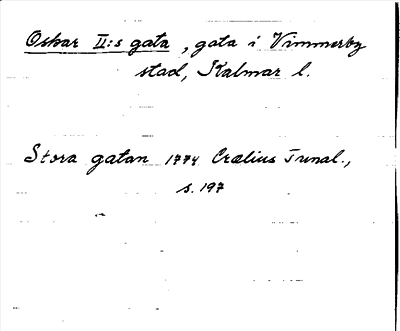 Oskar II:s gata, gata i Vimmerby
stad, Kalmar l.
Stora gatan 1774 Crælius Tunal.,
s. 197